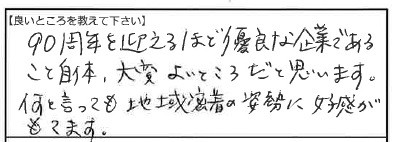 【良いところを教えて下さい】
90周年を迎えるほど優良な企業である
こと自体、大変よいところだと思います。
何と言っても地域密着の姿勢に好感が
もてます。